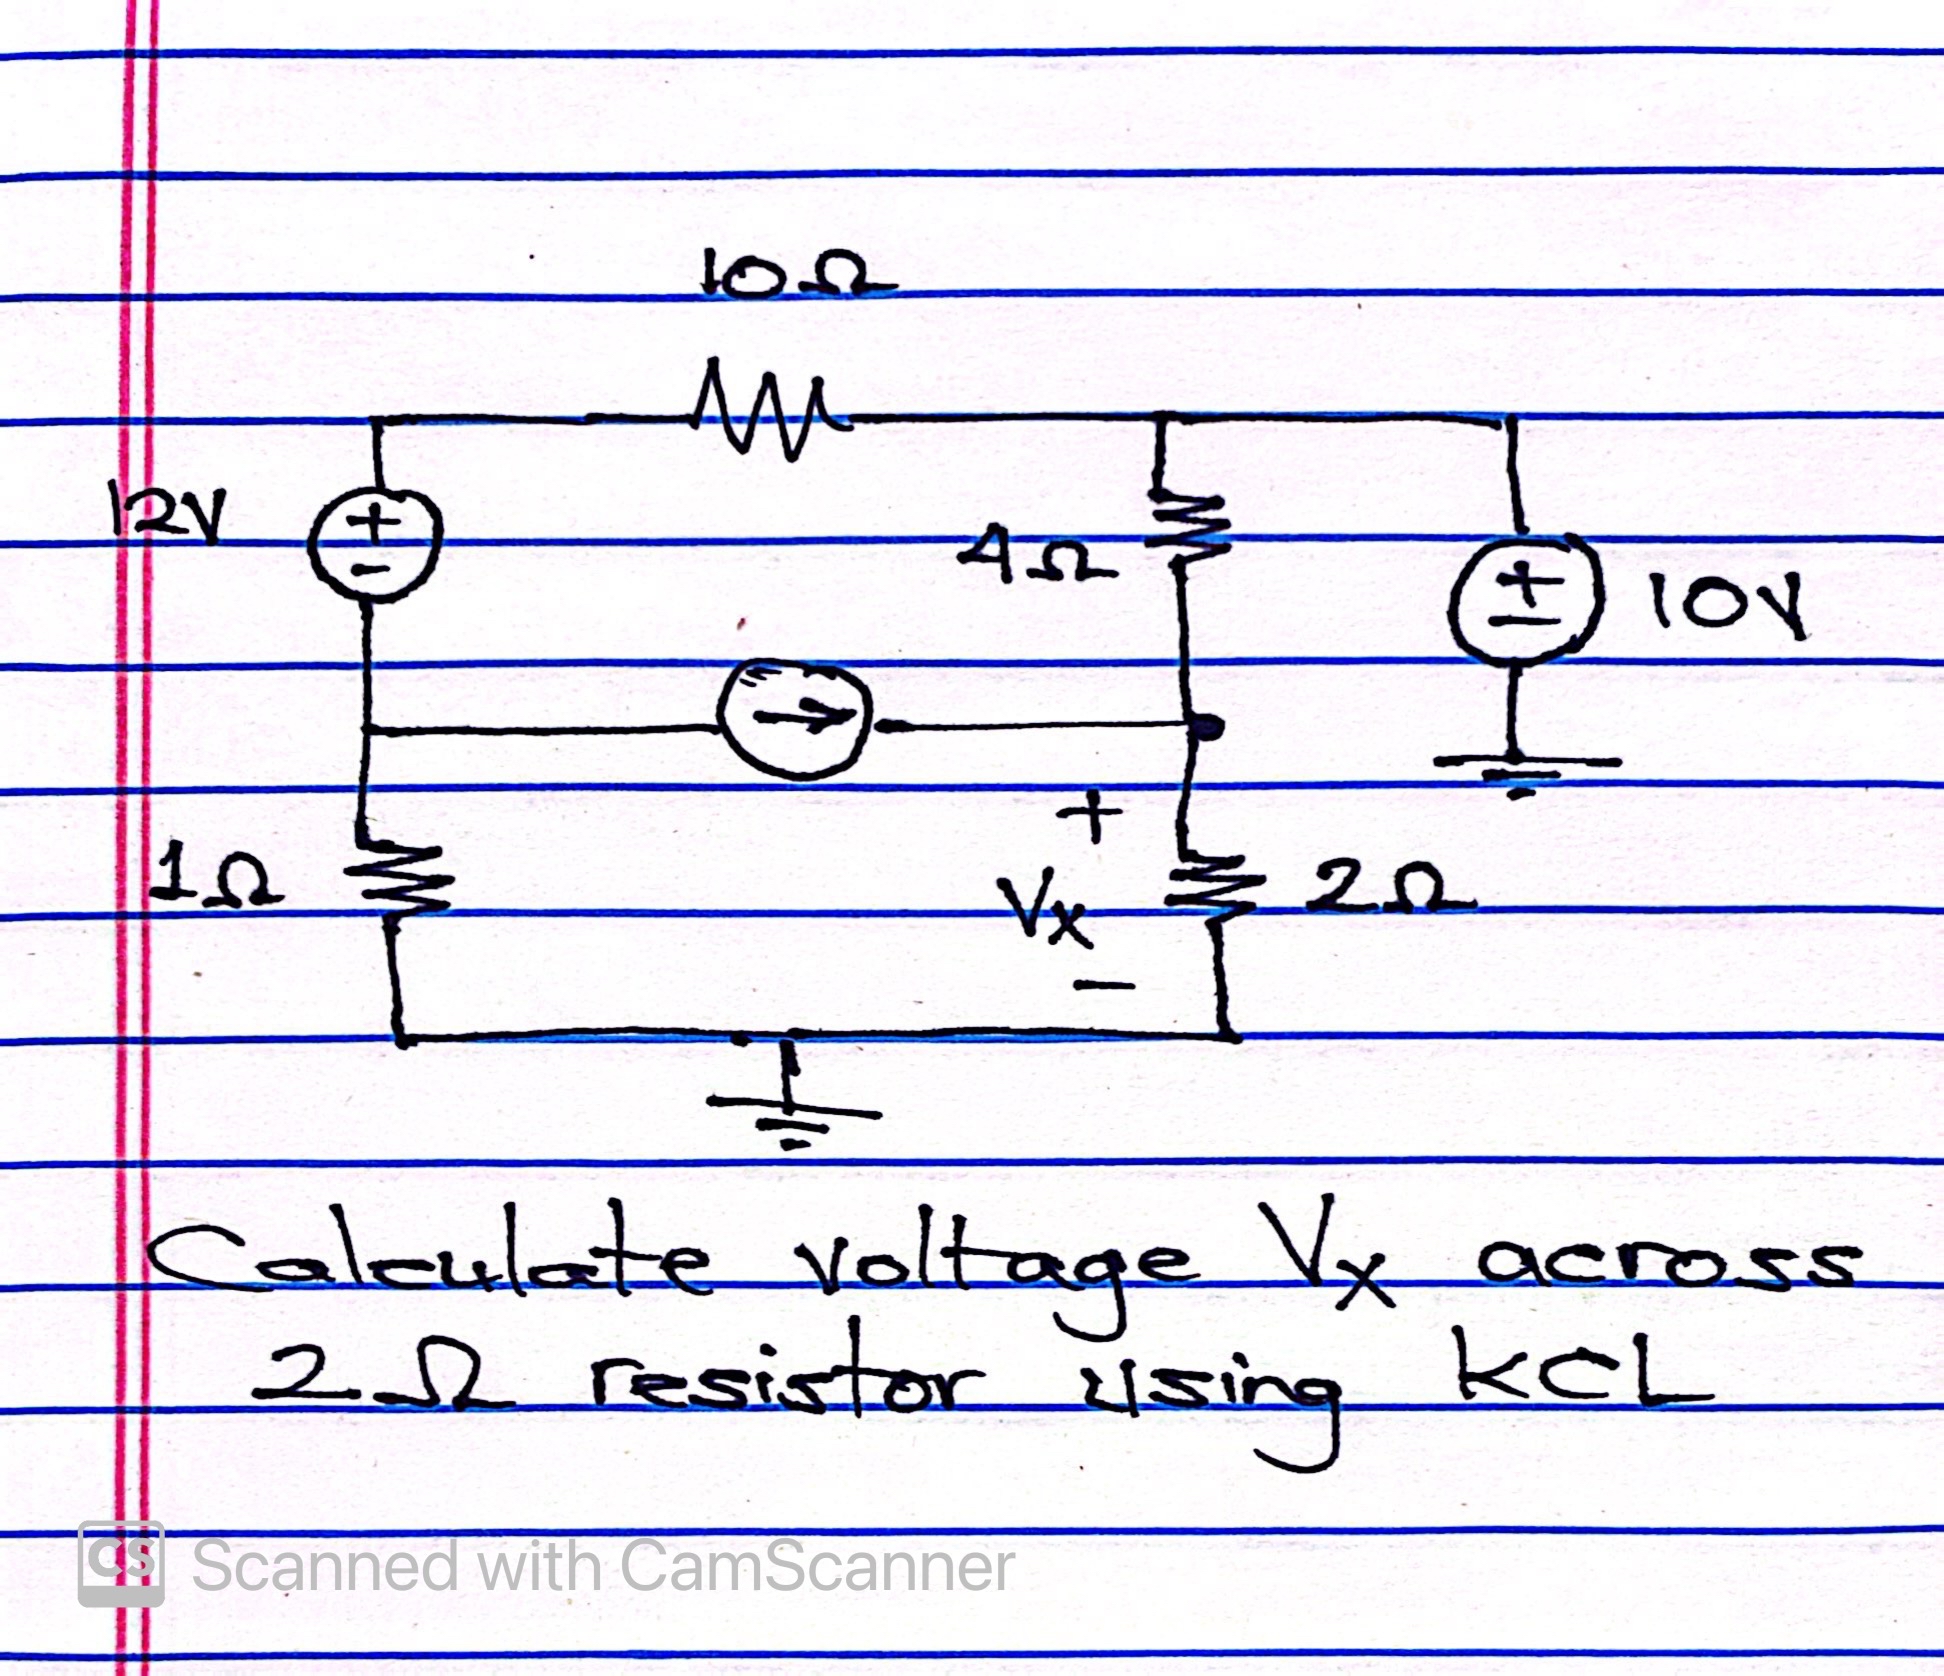 10Ω
12V
+
-
4Ω
+
-
10V
+
1Ω
Vx
2Ω
-
Calculate voltage Vx across
2Ω resistor using KCL
CS Scanned with CamScanner